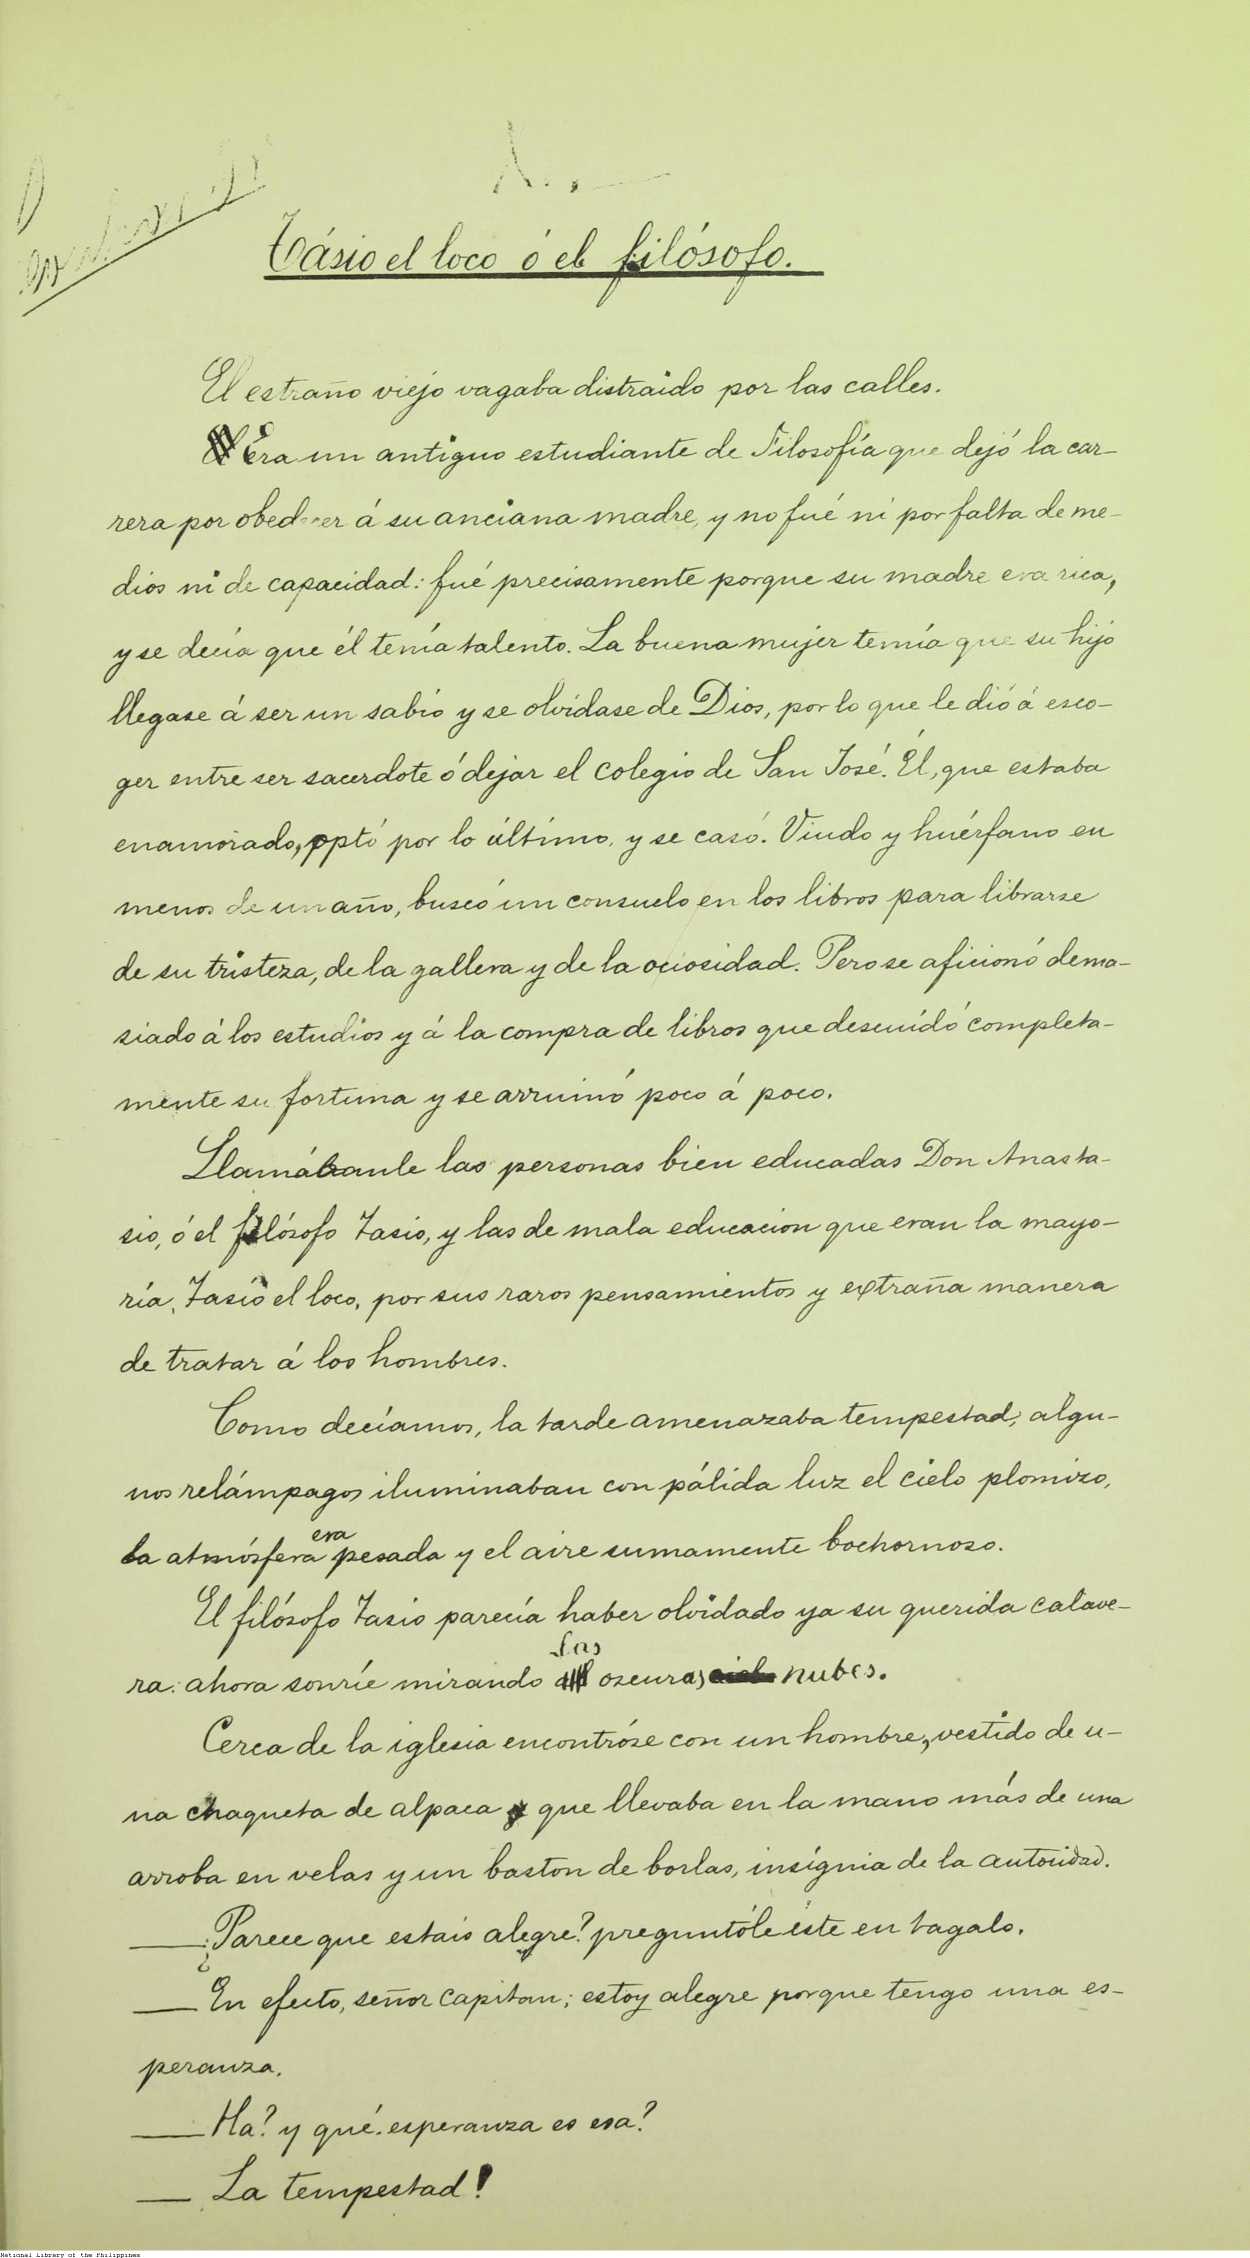 Tásio el loco ó el filósofo.
El estraño viejo vagaba distraido por las calles.
Era un antiguo estudiante de Filosofía que dejó la car-
rera por obedecer á su anciana madre, y no fué ni por falta de me-
dios ni de capacidad: fué precisamente porque su madre era rica,
y se decía que él tenía talento. La buena mujer temía que su hijo
llegase á ser un sabio y se olvidase de Dios, por lo que le dió á esco-
ger entre ser sacerdote ó dejar el colegio de San José. Él, que estaba
enamorado, optó por lo último, y se casó. Viudo y huérfano en
menos de un año, buscó un consuelo en los libros para librarse
de su tristeza, de la gallera y de la ociosidad. Pero se aficionó dema-
siado á los estudios y á la compra de libros que descuidó completa-
mente su fortuna y se arruinó poco á poco.
Llamábanle las personas bien educadas Don Anasta-
sio, ó el filósofo Tasio, y las de mala educacion que eran la mayo-
ría, Tasio el loco, por sus raros pensamientos y extraña manera
de tratar á los hombres.
Como decíamos, la tarde amenazaba tempestad; algu-
nos relámpagos iluminaban con pálida luz el cielo plomizo,
la atmósfera era pesada y el aire sumamente bochornoso.
El filósofo Tasio parecía haber olvidado ya su querida calave-
ra: ahora sonríe mirando las oscuras nubes.
Cerca de la iglesia encontróse con un hombre, vestido de u-
na chaqueta de alpaca y que llevaba en la mano más de una
arroba en velas y un baston de borlas, insígnia de la autoridad.
— ¿Parece que estais alegre? preguntóle éste en tagalo.
— En efecto, señor capitan; estoy alegre porque tengo una es-
peranza.
— Ha? y qué esperanza es esa?
— La tempestad!
National Library of the Philippines